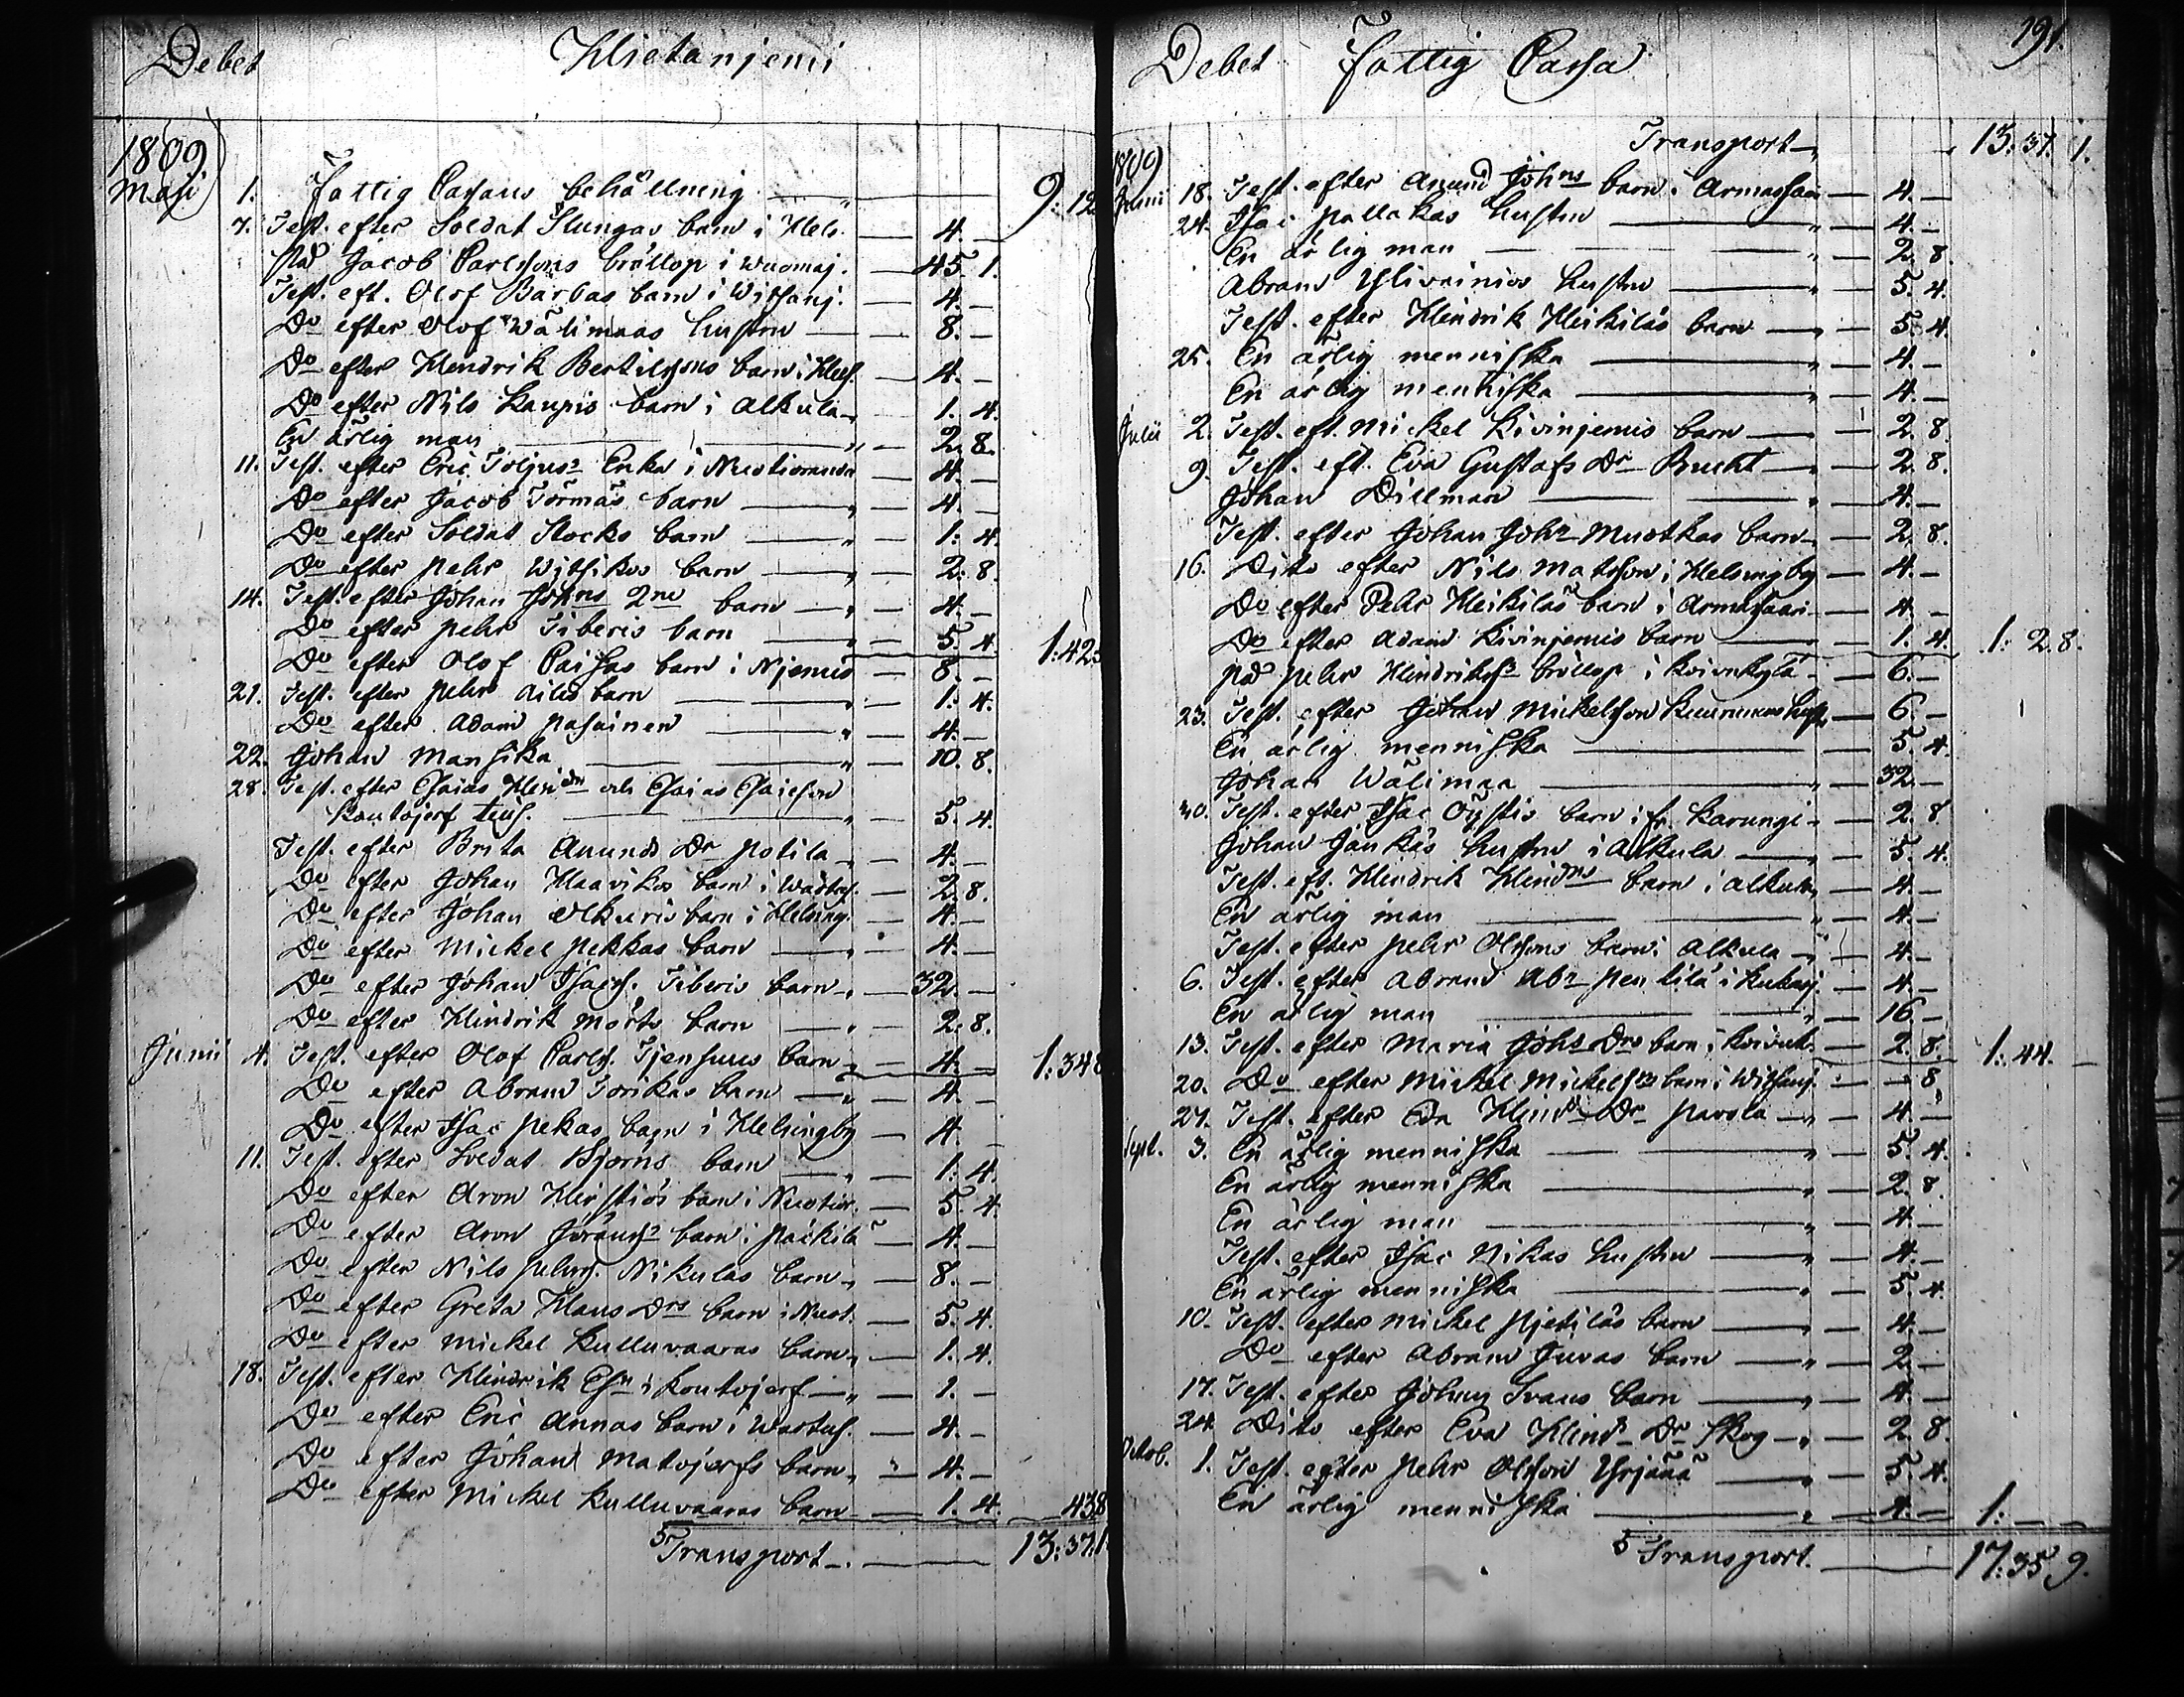 Debet Hietanjemi
1809
Maji 1. Fattig Cassans behållning 9: 12
7. Test. efter Soldat Slungas barn i Hels. 4. —
På Jacob Carlssons bröllop i Wuomaj. 45. 1.
Test. eft. Olof Barbas barn i Witsanj. 4. —
Do efter Olof Wälimaas hustru 8. —
Do efter Hendrik Bertilssons barn i Hels. 4. —
Do efter Nils Kaupis barn i Alkula 1. 4.
En ärlig man 2. 8.
11. Test. efter Eric Toljus Enka i Nuotioranda 4. —
Do efter Jacob Törmäs barn 4. —
Do efter Soldat Stocks barn 1: 4.
Do efter Pehr Witsikos barn 2: 8.
14. Test. efter Johan Johns 2ne barn 4. —
Do efter Pehr Tiberis barn 5. 4. 1:42:
Do efter Olof Paisas barn i Njemis 8. —
21. Test. efter Pehr Ailis barn 1: 4.
Do efter Adam Pasainen 4. —
22. Johan Mansika 10. 8.
28. Test. efter Esaias Hendn och Esaias Esaieson
Koutojerf tius. 5. 4.
Test. efter Brita Anunds Dr Potila 4. —
Do efter Johan Haavikos barn i Wartus. 2. 8.
Do efter Johan Alkuris barn i Helsing. 4. —
Do efter Mickel Pekkas barn 4. —
Do efter Johan Isacs. Tiberis barn 32. —
Do efter Hindrik Mörts barn 2: 8.
Junii 4. Test. efter Olof Carls. Tjensuus barn 4. — 1:348
Do efter Abram Torikas barn 4. —
Do efter Isac Pekas barn i Helsingby 4. —
11. Test. efter Soldat Björns barn 1: 4.
Do efter Aron Heistiös barn i Nuotior. 5. 4.
Do efter Aron Görans barn i Päkilä 4. —
Do efter Nils Pehrs. Nikulas barn 8. —
Do efter Greta Hans Drs barn i Nuot. 5. 4.
Do efter Mickel Kulluvaaras barn 1. 4.
18. Test. efter Hindrik Esn i Koutojerf 1. —
Do efter Eric Annas barn i Wartus. 4. —
Do efter Johan Matojerfs barn 4. —
Do efter Mickel Kulluvaaras barn 1. 4. 438
Transport 13:37.1.
Debet Fattig Cassa 191.
1809
Transport 13: 37. 1.
Junii 18. Test. efter Anund Johns barn i Armassaari 4. —
24. Isac Pallakas hustru 4. —
En ärlig man 2. 8.
Abram Ylivainios hustru 5. 4.
Test. efter Hendrik Heikiläs barn 5. 4.
25. En ärlig menniska 4. —
En ärlig menniska 4. —
Julii 2. Test. eft. Mickel Kivinjemis barn 2. 8.
9. Test. eft. Eva Gustafs Dr Brucht 2. 8.
Johan Dillman 4. —
Test. efter Johan Johs Muotkas barn 2. 8.
16. Dito efter Nils Matsson i Helsingby 4. —
Do efter Pehr Heikiläs barn i Armassaari 4. —
Do efter Adam Kivinjemis barn 1. 4. 1: 2.8.
På Pehr Hindrikss bröllop i Koivukylä 6. —
23. Test. efter Johan Mickelson Kuurumus hust. 6. —
En ärlig menniska 5. 4.
Johan Wälimaa 32 —
30. Test. efter Isac Oystis barn i fr. Karungi 2. 8
Johan Jänkäs hustru i Alkula 5. 4.
Test. eft. Hindrik Hindns barn i Alkula 4. —
En ärlig man 4. —
Test. efter Pehr Olssons barn i Alkula 4. —
6. Test. efter Abram Abrs Pentilä i Kukasj. 4. —
En ärlig man 16. —
13. Test. efter Maria Johs Drs barn i Koivuk. 2. 8. 1: 44. —
20. Do efter Mickel Mickelsons barn i Witsanj. — 8.
27. Test. efter Eva Hinds Dr Parola 4. —
Sept. 3. En ärlig menniska 5. 4.
En ärlig menniska 2. 8.
En ärlig man 4. —
Test. efter Isac Nikas hustru 4. —
En ärlig menniska 5. 4.
10. Test. efter Mickel Pjetiläs barn 4. —
Do efter Abram Juvas barn 2. —
17. Test. efter Johan Svans barn 4. —
24 Dito efter Eva Hinds Dr Skog 2. 8.
Octob. 1. Test. efter Pehr Olsson Yrjänä 5. 4.
En ärlig menniska 4. — 1: — —
Transport. 17:35 9.